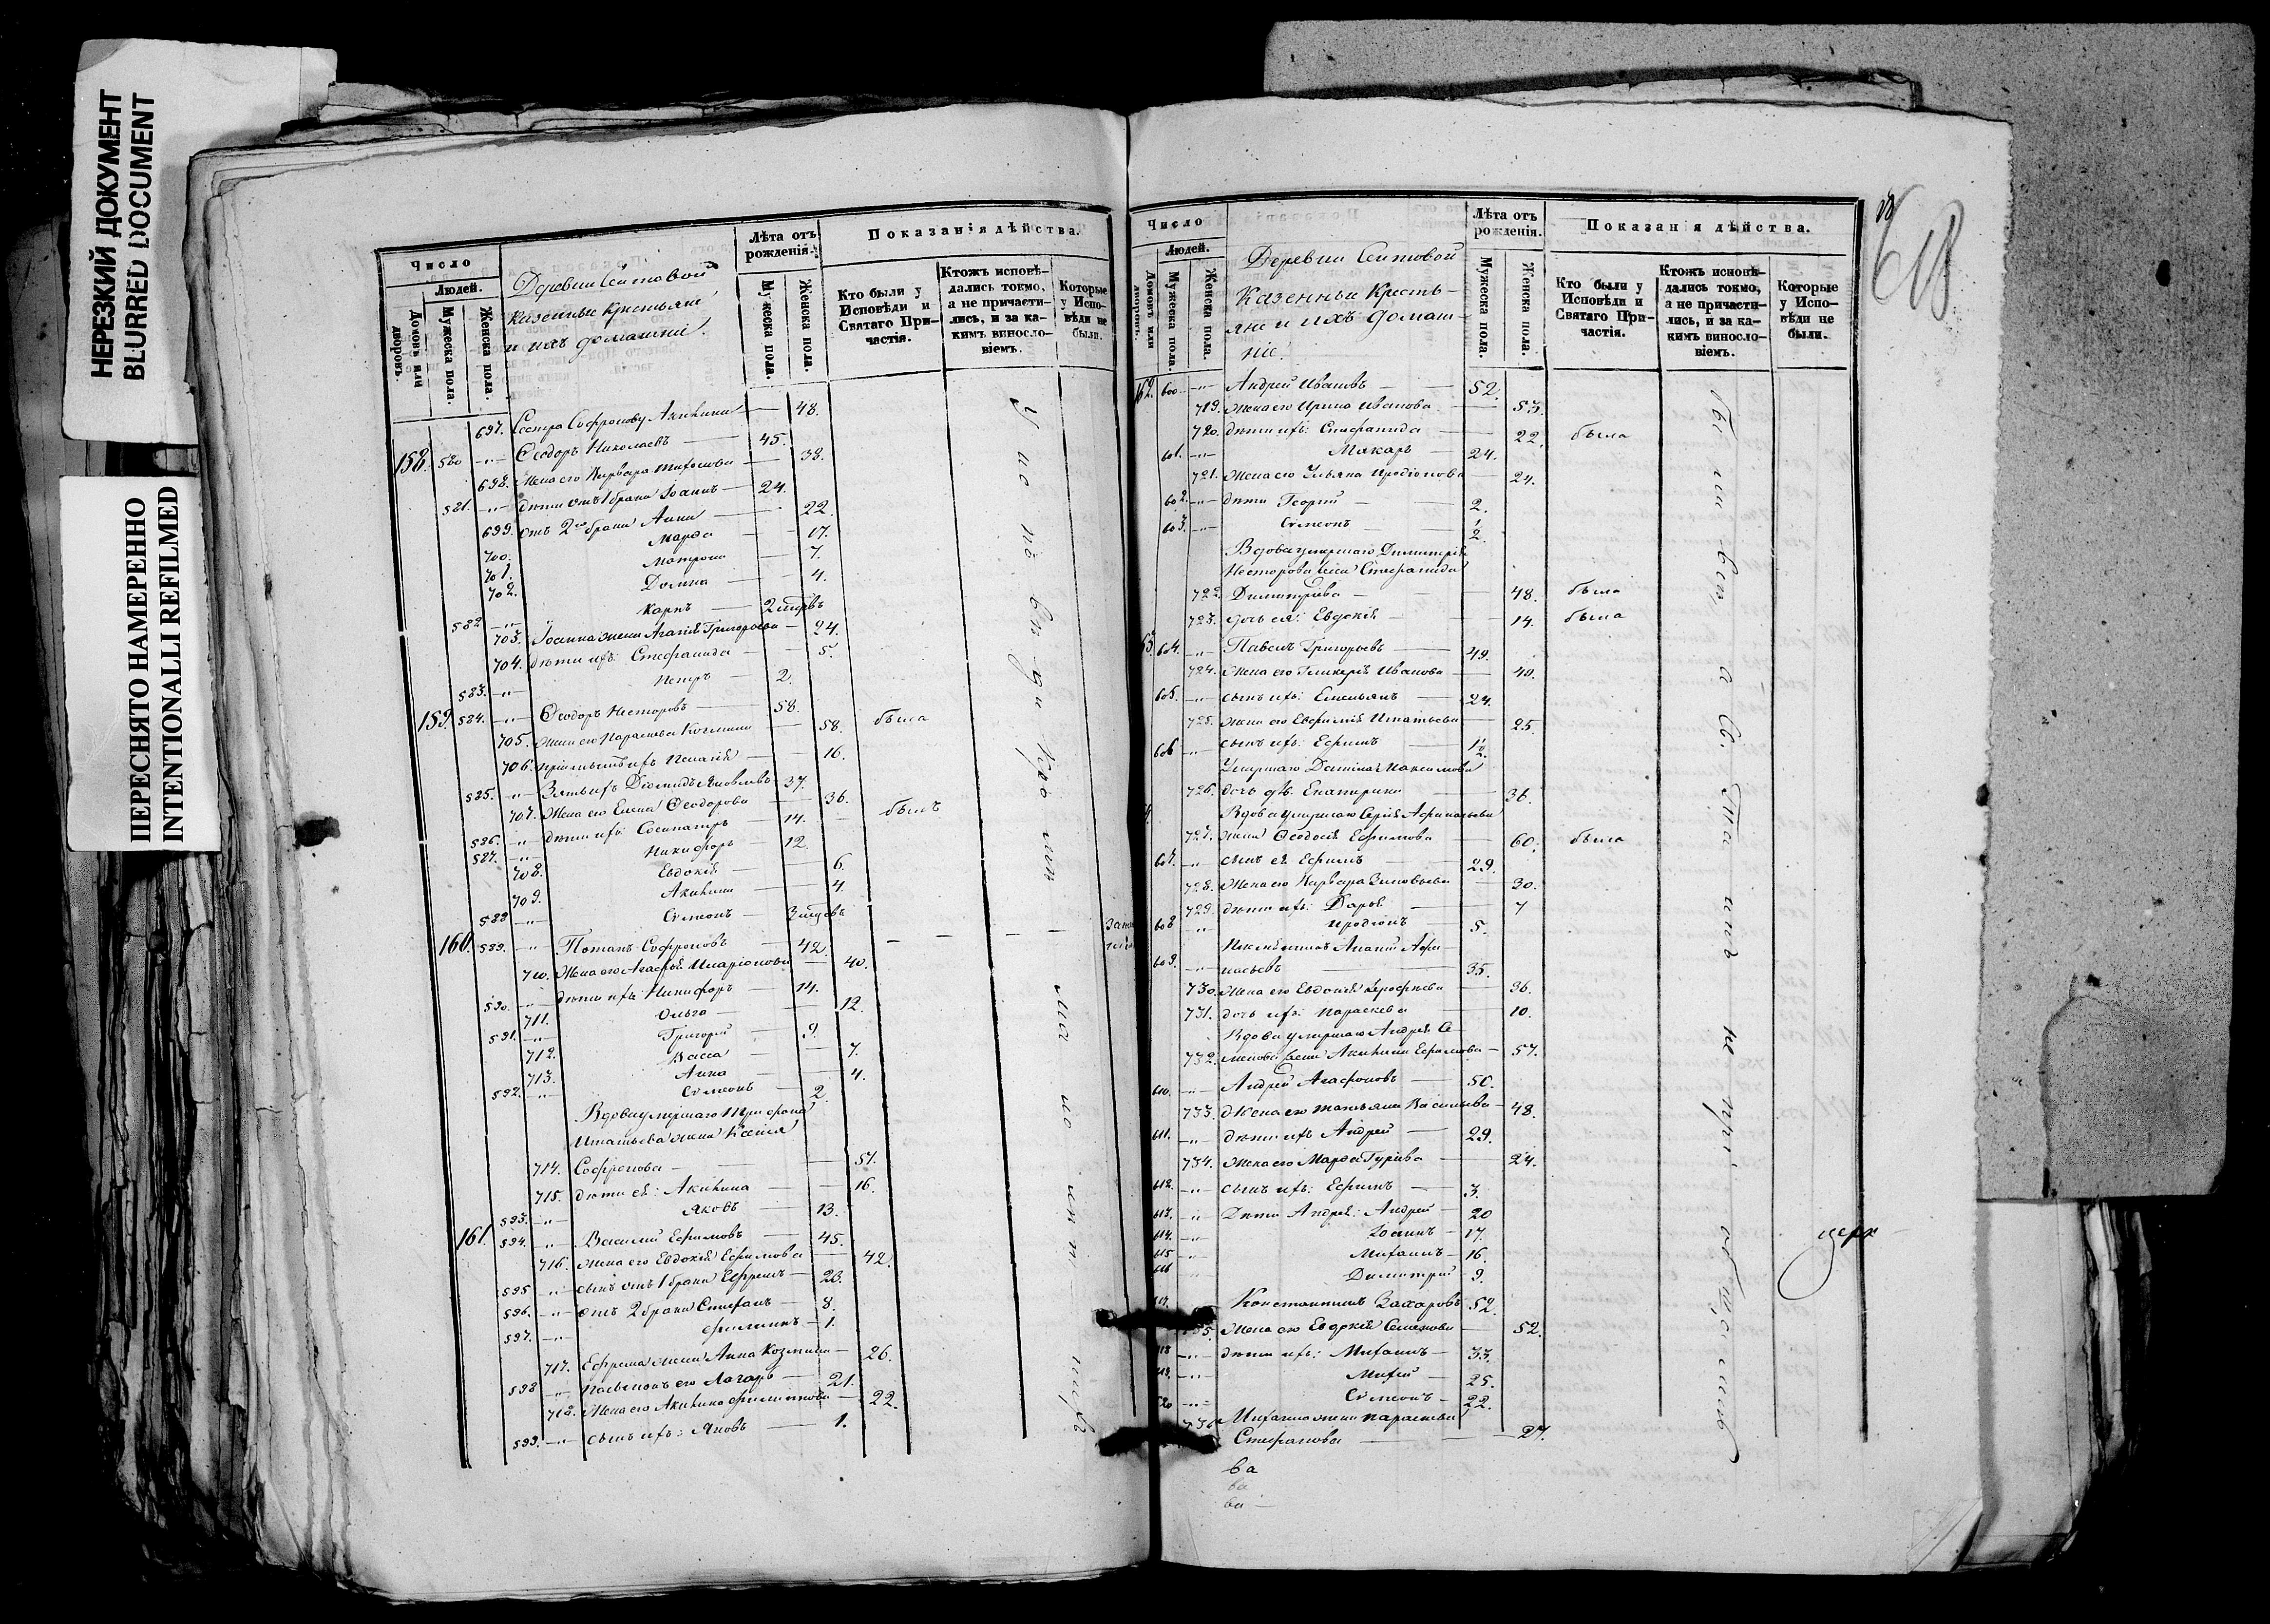 НЕРЕЗКИЙ ДОКУМЕНТ
BLURRED DOCUMENT
ПЕРЕСНЯТО НАМЕРЕННО
INTENTIONALLI REFILMED
Число
Людей.
Домовъ или дворовъ.
Мужеска пола.
Женска пола.
Деревни Сѣитовой
казенные крестьяне
и ихъ домашніе.
Лѣта отъ рожденія.
Мужеска пола.
Женска пола.
Показанія дѣйства.
Кто были у Исповѣди и Святаго Причастія.
Ктожъ исповѣдались токмо, а не причастились, и за какимъ винословіемъ.
Которые у Исповѣди не были.
697. Сестра Софронову Акилина — 48.
158. 580 —"— Ѳеодоръ Николаевъ — 45.
698. Жена его Варвара — 38.
581. —"— дѣти отъ 1 брака Іоаннъ — 24.
699. отъ 2го брака Анна — 22.
700. Марѳа — 17.
701. Матрона — 7.
702. Домна — 4.
582 —"— Карпъ — 2
703. Іоанна жена Агаѳія Григорьева — 24.
704. дѣти ихъ: Стефанида — 5.
583. —"— Петръ — 2.
159. 584. —"— Ѳеодоръ Несторовъ — 58.
705. жена его Параскева Козмина — 58. была
706. ихъ Пелагія — 16.
585. —"— Зять ихъ Діомидъ Яковлевъ — 37.
707. Жена его Елена Ѳеодорова — 36. былъ
586. —"— дѣти ихъ: Сосипатръ — 14.
587. —"— Никифоръ — 12.
708. Евдокія — 6.
709. Акилина — 4.
588 —"— Сѵмеонъ — 3
160. 589. —"— Потапъ Софроновъ — 42.
710. Жена его Агафія Иларіонова — 40.
590. —"— дѣти ихъ: Никифоръ — 14.
711. Ольга — 12.
591. —"— Григорій — 9.
712. Васса — 7.
713. Анна — 4.
592. —"— Сѵмеонъ — 2.
Вдова умершаго Трифона
Игнатьева жена Ксенія
714. Софронова — 51.
715. дѣти ея: Акилина — 16.
593. —"— Яковъ — 13.
161. 594. —"— Василій Ефимовъ — 45.
716. жена его Евдокія Ефимова — 42.
595 —"— сынъ отъ 1 брака Ефремъ — 23.
596. —"— отъ 2 брака Стефанъ — 8.
597. —"— Филиппъ — 1.
717. Ефрема жена Анна Козмина — 26.
598 —"— Пасынокъ его Лазарь — 21.
718. Жена его Акилина Филиппова — 22.
599. —"— сынъ ихъ: Яковъ — 1.
Число
Людей.
Домовъ или дворовъ.
Мужеска пола.
Женска пола.
Деревни Сѣитовой
Казенные Кресть-
яне и ихъ домаш-
ніе.
Лѣта отъ рожденія.
Мужеска пола.
Женска пола.
Показан я дѣйства.
Кто были у Исповѣди и Святаго Причастія.
Ктожъ исповѣдались токмо, а не причастились, и за какимъ винословіемъ.
Которые у Исповѣди не были.
618
162. 600 —"— Андрей Ивановъ — 52.
719. жена его Ирина Иванова — 53.
720. дѣти ихъ: Стефанида — 22. была
601. —"— Макаръ — 24.
721. жена его Ульяна Иродіонова — 24.
602. —"— дѣти Георгій — 2.
603. —"— Сѵмеонъ — 1/2.
Вдова умершаго Димитрія
Несторова жена Стефанида
722. Димитріева — 48. была
723. дочь ея: Евдокія — 14. была
63. 604. —"— Павелъ Григорьевъ — 49.
724. жена его Гликерія Иванова — 40.
605. —"— сынъ ихъ: Емельянъ — 24.
725. жена его Евфимія Игнатьева — 25.
606 —"— сынъ ихъ: Ефимъ — 1/2.
Умершаго Максимова
726. дочь дѣв. Екатерина — 36.
Вдова умершаго Сергія Афанасьева
727. жена Ѳеодосія Ефимова — 60. была
607. —"— сынъ ея Ефимъ — 29.
728. Жена его Варвара Зиновьева — 30.
729. дѣти ихъ: Дарья — 7
608 —"— Иродіонъ — 5.
Племянникъ Ананій Афа-
609. —"— насьевъ — 35.
730. Жена его Евдокія Дорофеева — 36.
731. дочь ихъ: Параскева — 10.
Вдова умершаго Андрея Се-
732. менова жена Акилина Ефимова — 57.
610. —"— Андрей Агафоновъ — 50.
733. Жена его Татьяна Васильева — 48.
611. —"— дѣти ихъ Андрей — 29.
734. жена его Марѳа Гурьева — 24.
612. —"— сынъ ихъ: Ефимъ — 3.
613. —"— Дѣти Андрея: Андрей — 20
614. —"— Іоаннъ — 17.
615 —"— Михаилъ — 16.
616 Димитрій — 9.
617. Константинъ Захаровъ 52.
735. Жена его Евдокія Семенова — 52.
618 —"— дѣти ихъ: Михаилъ — 33.
619. —"— Матѳій — 25.
620 —"— Сѵмеонъ — 22.
736 Михаила жена Параскева
Стефанова — 27.
ва
ва
ва —